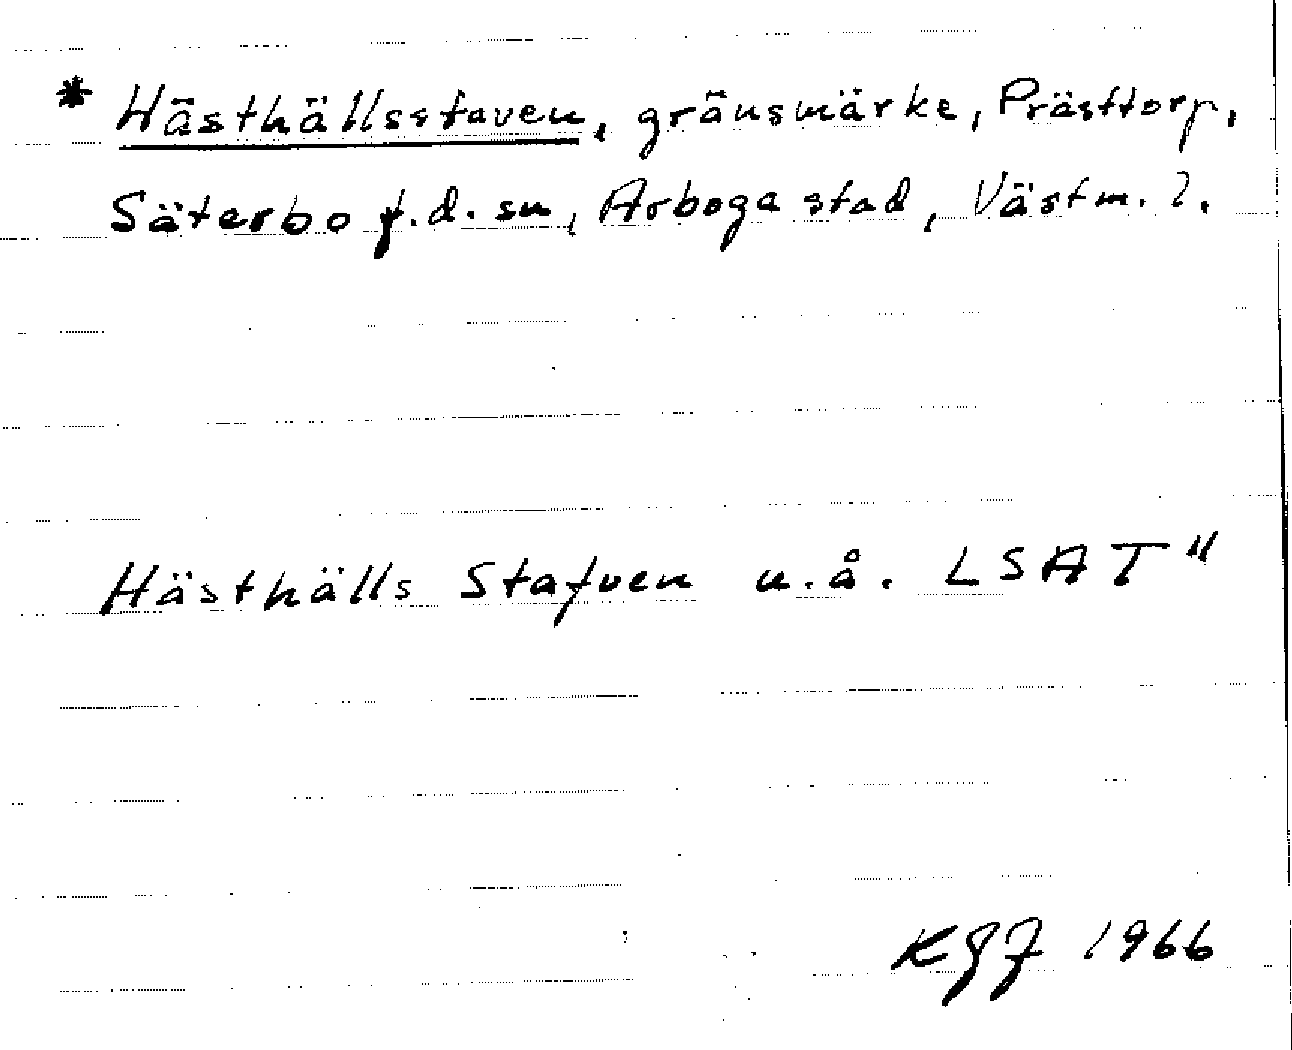 * Hästhällsstaven, gränsmärke, Prästtorp,
Säterbo f.d. sn, Arboga stad, Västm. l.
Hästhälls Stafven u.å. LSAT"
KGF 1966